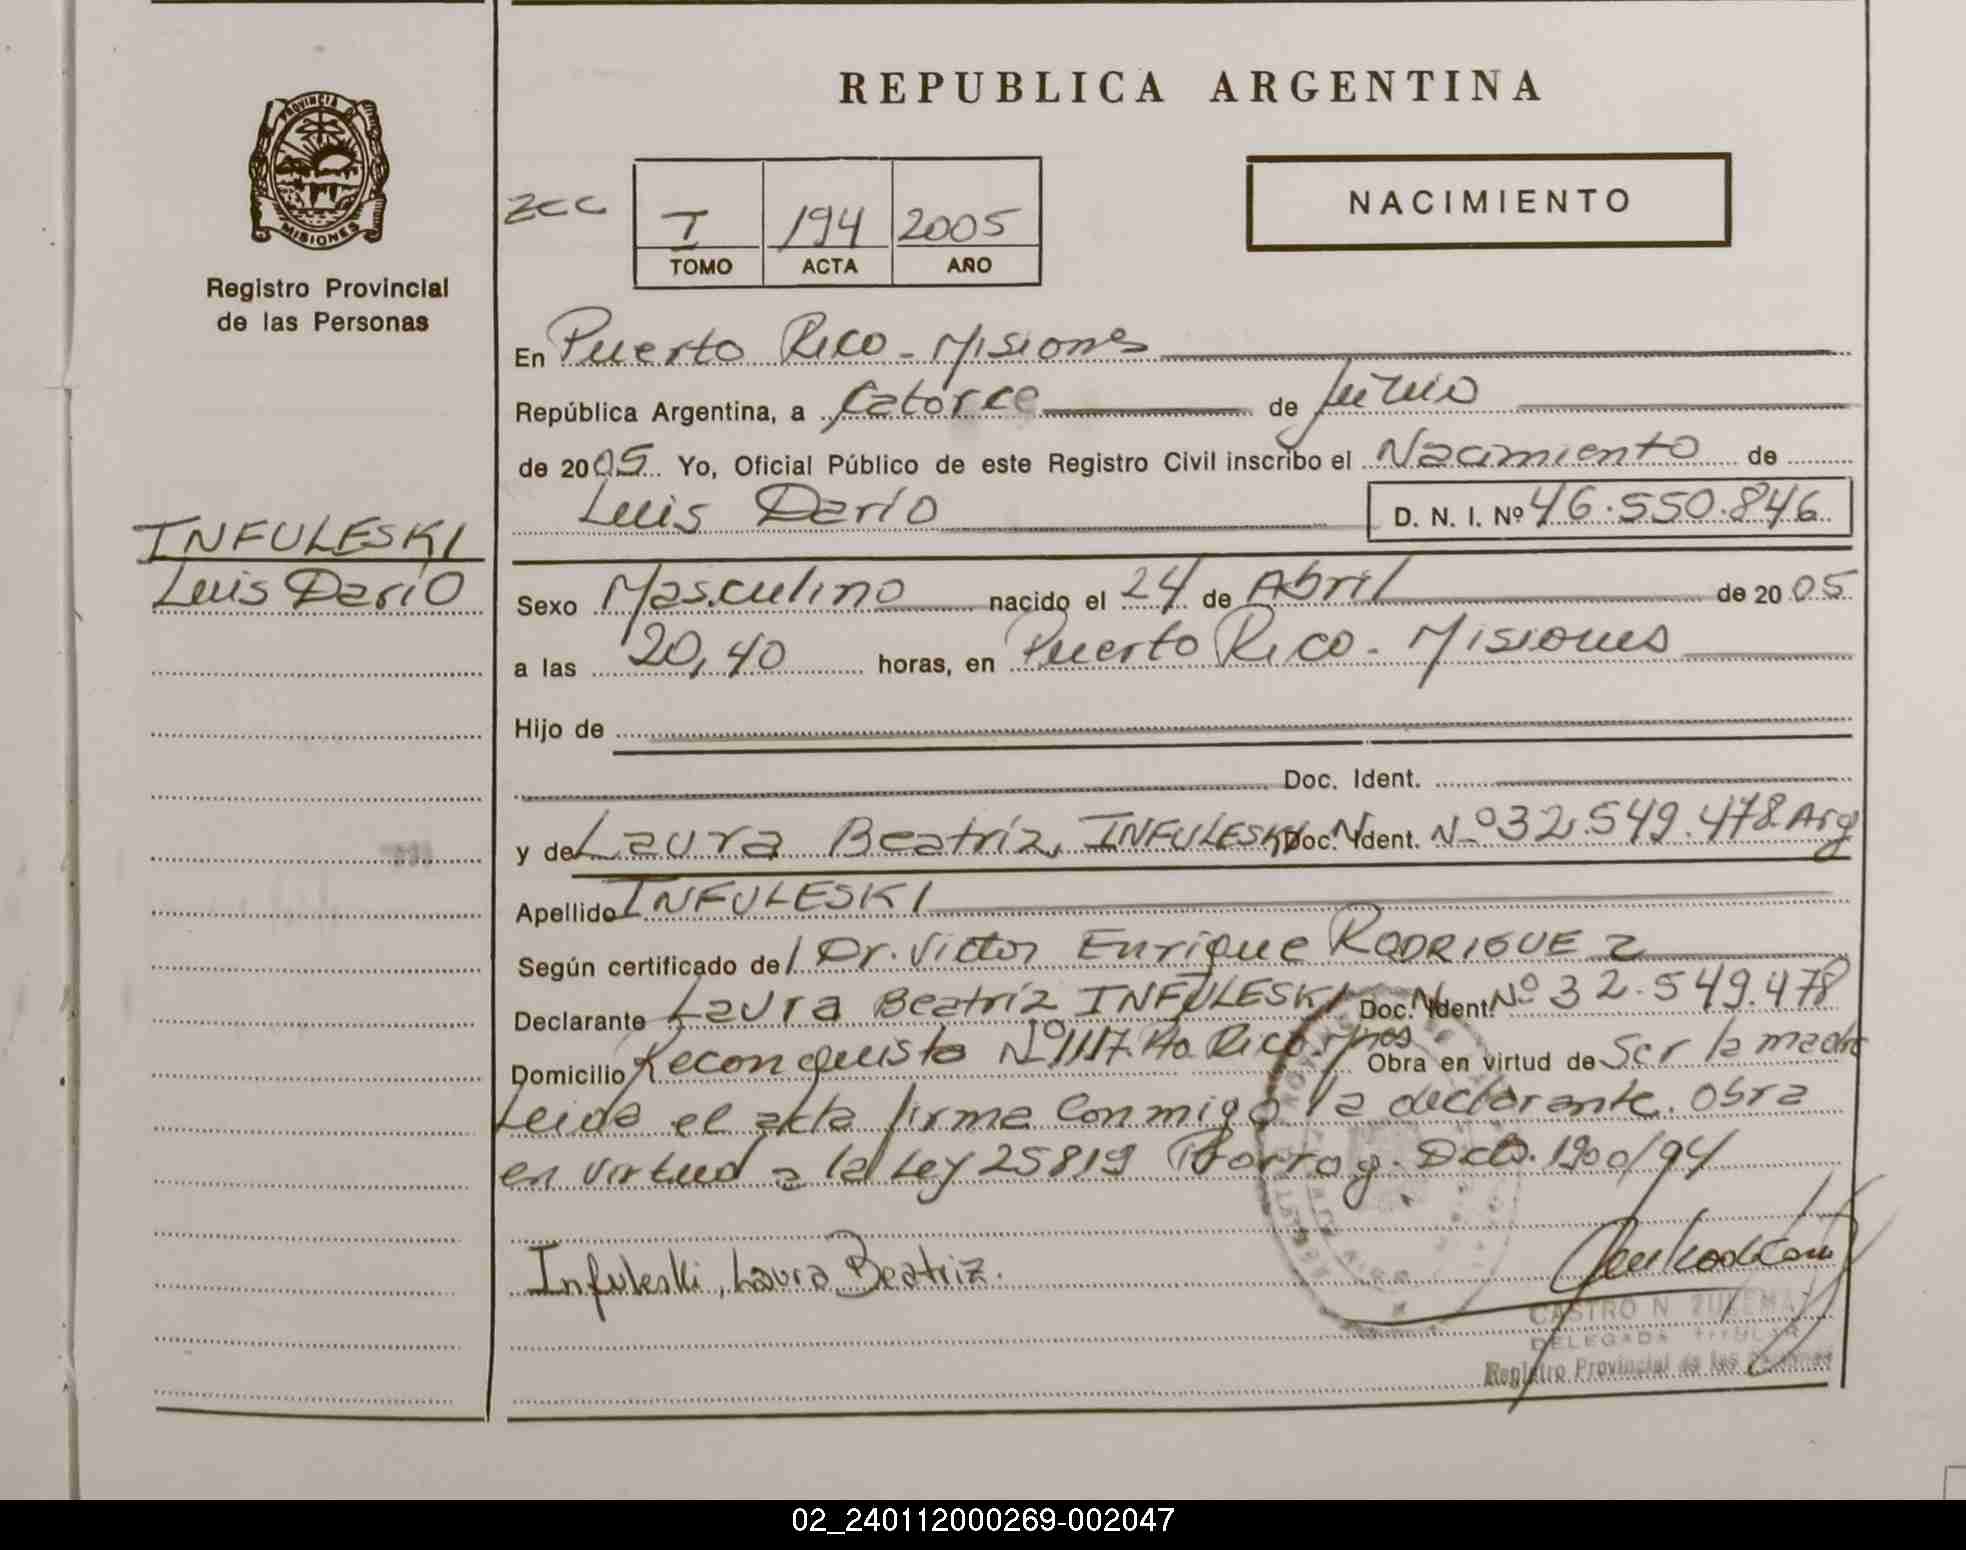 REPUBLICA ARGENTINA
PROVINCIA DE
MISIONES
Registro Provincial
de las Personas
NACIMIENTO
I 194 2005
TOMO ACTA AÑO
En Puerto Rico - Misiones
República Argentina, a Catorce de Junio
de 2005 Yo, Oficial Público de este Registro Civil inscribo el Nacimiento de
Luis Dario D. N. I. Nº 46.550.846
INFULESKI
Luis Dario
Sexo Masculino nacido el 24 de Abril de 2005
a las 20,40 horas, en Puerto Rico - Misiones
Hijo de
Doc. Ident.
y de Laura Beatríz, INFULESKI Doc. Ident. Nº 32.549.478 Arg
Apellido INFULESKI
Según certificado del Dr. Victor Enrique RODRIGUEZ
Declarante Laura Beatríz INFULESKI Doc. Ident. Nº 32.549.478
Domicilio Reconquista Nº 1117. Pto. Rico. Mnes Obra en virtud de Ser la madre
Leida el acta firma Conmigo la declarante. Obra
en virtud a la Ley 25819 Prorrog. Dcto. 1900/94
Infuleski, Laura Beatriz.
CASTRO N ZULEMA
DELEGADA TITULAR
Registro Provincial de las Personas
02_240112000269-002047